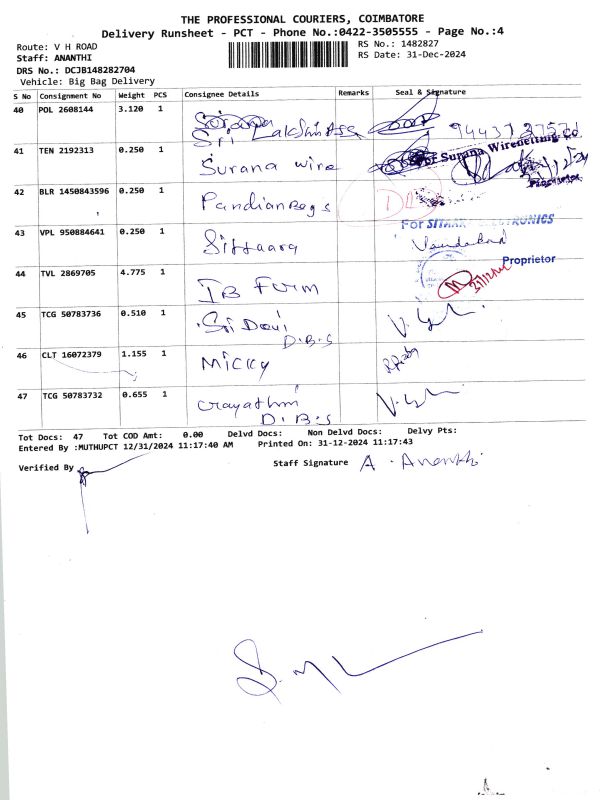 THE PROFESSIONAL COURIERS, COIMBATORE
Delivery Runsheet - PCT - Phone No.:0422-3505555 - Page No.:4
Route: V H ROAD
RS No.: 1482827
Staff: ANANTHI
RS Date: 31-Dec-2024
DRS No.: DCJB148282704
Vehicle: Big Bag Delivery
S No Consignment No Weight PCS Consignee Details Remarks Seal & Signature
40 POL 2608144 3.120 1 Sri Lakshmi
41 TEN 2192313 0.250 1 Surana wire For Surana Wirenetting Co
Proprietor
42 BLR 1450843596 0.250 1 Pandian Bags
43 VPL 950884641 0.250 1 Sittaara For SITHAR ELECTRONICS
Proprietor
44 TVL 2869705 4.775 1 IB Furm
45 TCG 50783736 0.510 1 Sri Devi
D.B.S
46 CLT 16072379 1.155 1 Micky
47 TCG 50783732 0.655 1 Gayathri
D.B.S
Tot Docs: 47 Tot COD Amt: 0.00 Delvd Docs: Non Delvd Docs: Delvy Pts:
Entered By :MUTHUPCT 12/31/2024 11:17:40 AM Printed On: 31-12-2024 11:17:43
Verified By
Staff Signature A. Ananthi